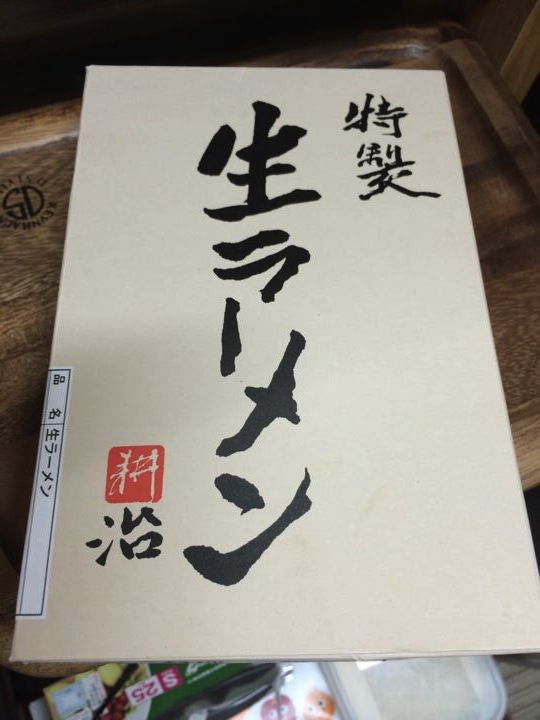 特製
生ラーメン
耕治
品 名 生ラーメン
S 25